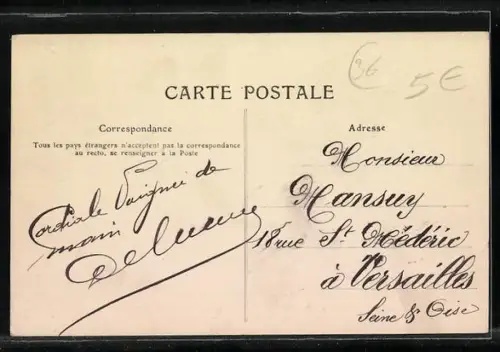 36
5€
CARTE POSTALE
Correspondance
Tous les pays étrangers n'acceptent pas la correspondance
au recto, se renseigner à la Poste
Cordiale Poignée de
main
Adresse
Monsieur
Mansuy
18 rue St Médéric
à Versailles
Seine & Oise